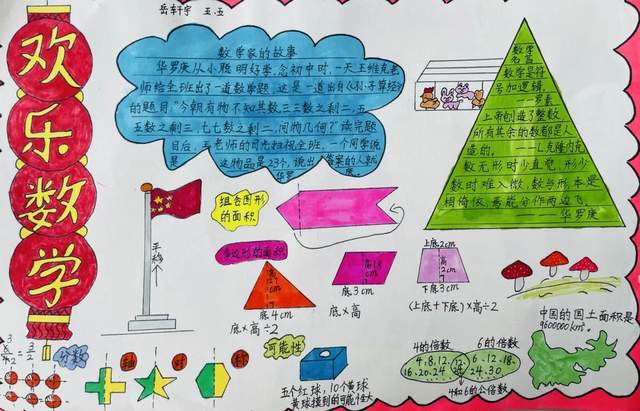 岳轩宇 五.五
欢乐数学
数学家的故事
华罗庚从小聪明好学,念初中时,一天王维克老
师给全班出了一道数学题,这是一道出自《孙子算经》
的题目,"今朝有物不知其数,三三数之剩二,五
五数之剩三,七七数之剩二,问物几何?"读完题
目后,王老师的目光扫视全班,一个同学说
是 这物品是23个,说出答案的人就
是 华罗庚。
数学
名言
数学是符
号加逻辑。
——罗素
上帝创造了整数,
所有其余的数都是人
造的。 ——L.克隆内克
数无形时少直觉,形少
数时难入微,数与形,本是
相倚依,焉能分作两边飞。
——华罗庚
平移个
组合图形
的面积
多边形的面积
高
cm
底4cm
底×高÷2
高
cm
底3cm
底×高
上底2cm
高
2
cm
下底3cm
(上底+下底)×高÷2
中国的国土面积是
9600000km²。
分数
轴
对
称
可能性
五个红球,10个黄球
黄球摸到的可能性大
4的倍数 6的倍数
4,8,12, 12, 6.12.18.
16.20.24 24 24.30
4和6的公倍数